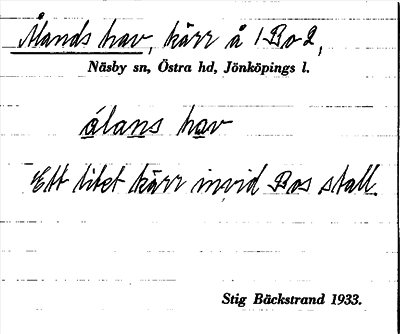 Ålands hav, kärr å 1 Bo 2,
Näsby sn, Östra hd, Jönköpings l.
ålans hav
Ett litet kärr invid Bos stall.
Stig Bäckstrand 1933.